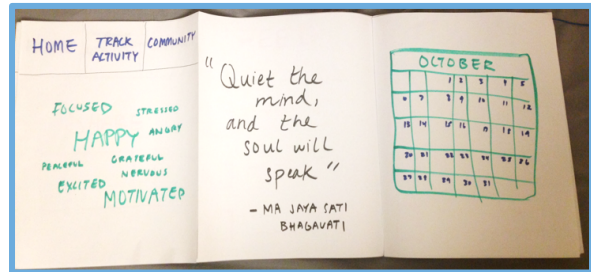 HOME
TRACK
ACTIVITY
COMMUNITY
FOCUSED
STRESSED
HAPPY
ANGRY
PEACEFUL
GRATEFUL
NERVOUS
EXCITED
MOTIVATED
"Quiet the
mind,
and the
soul will
speak"
- MA JAYA SATI
BHAGAVATI
OCTOBER
1 2 3 4 5
6 7 8 9 10 11 12
13 14 15 16 17 18 19
20 21 22 23 24 25 26
27 28 29 30 31